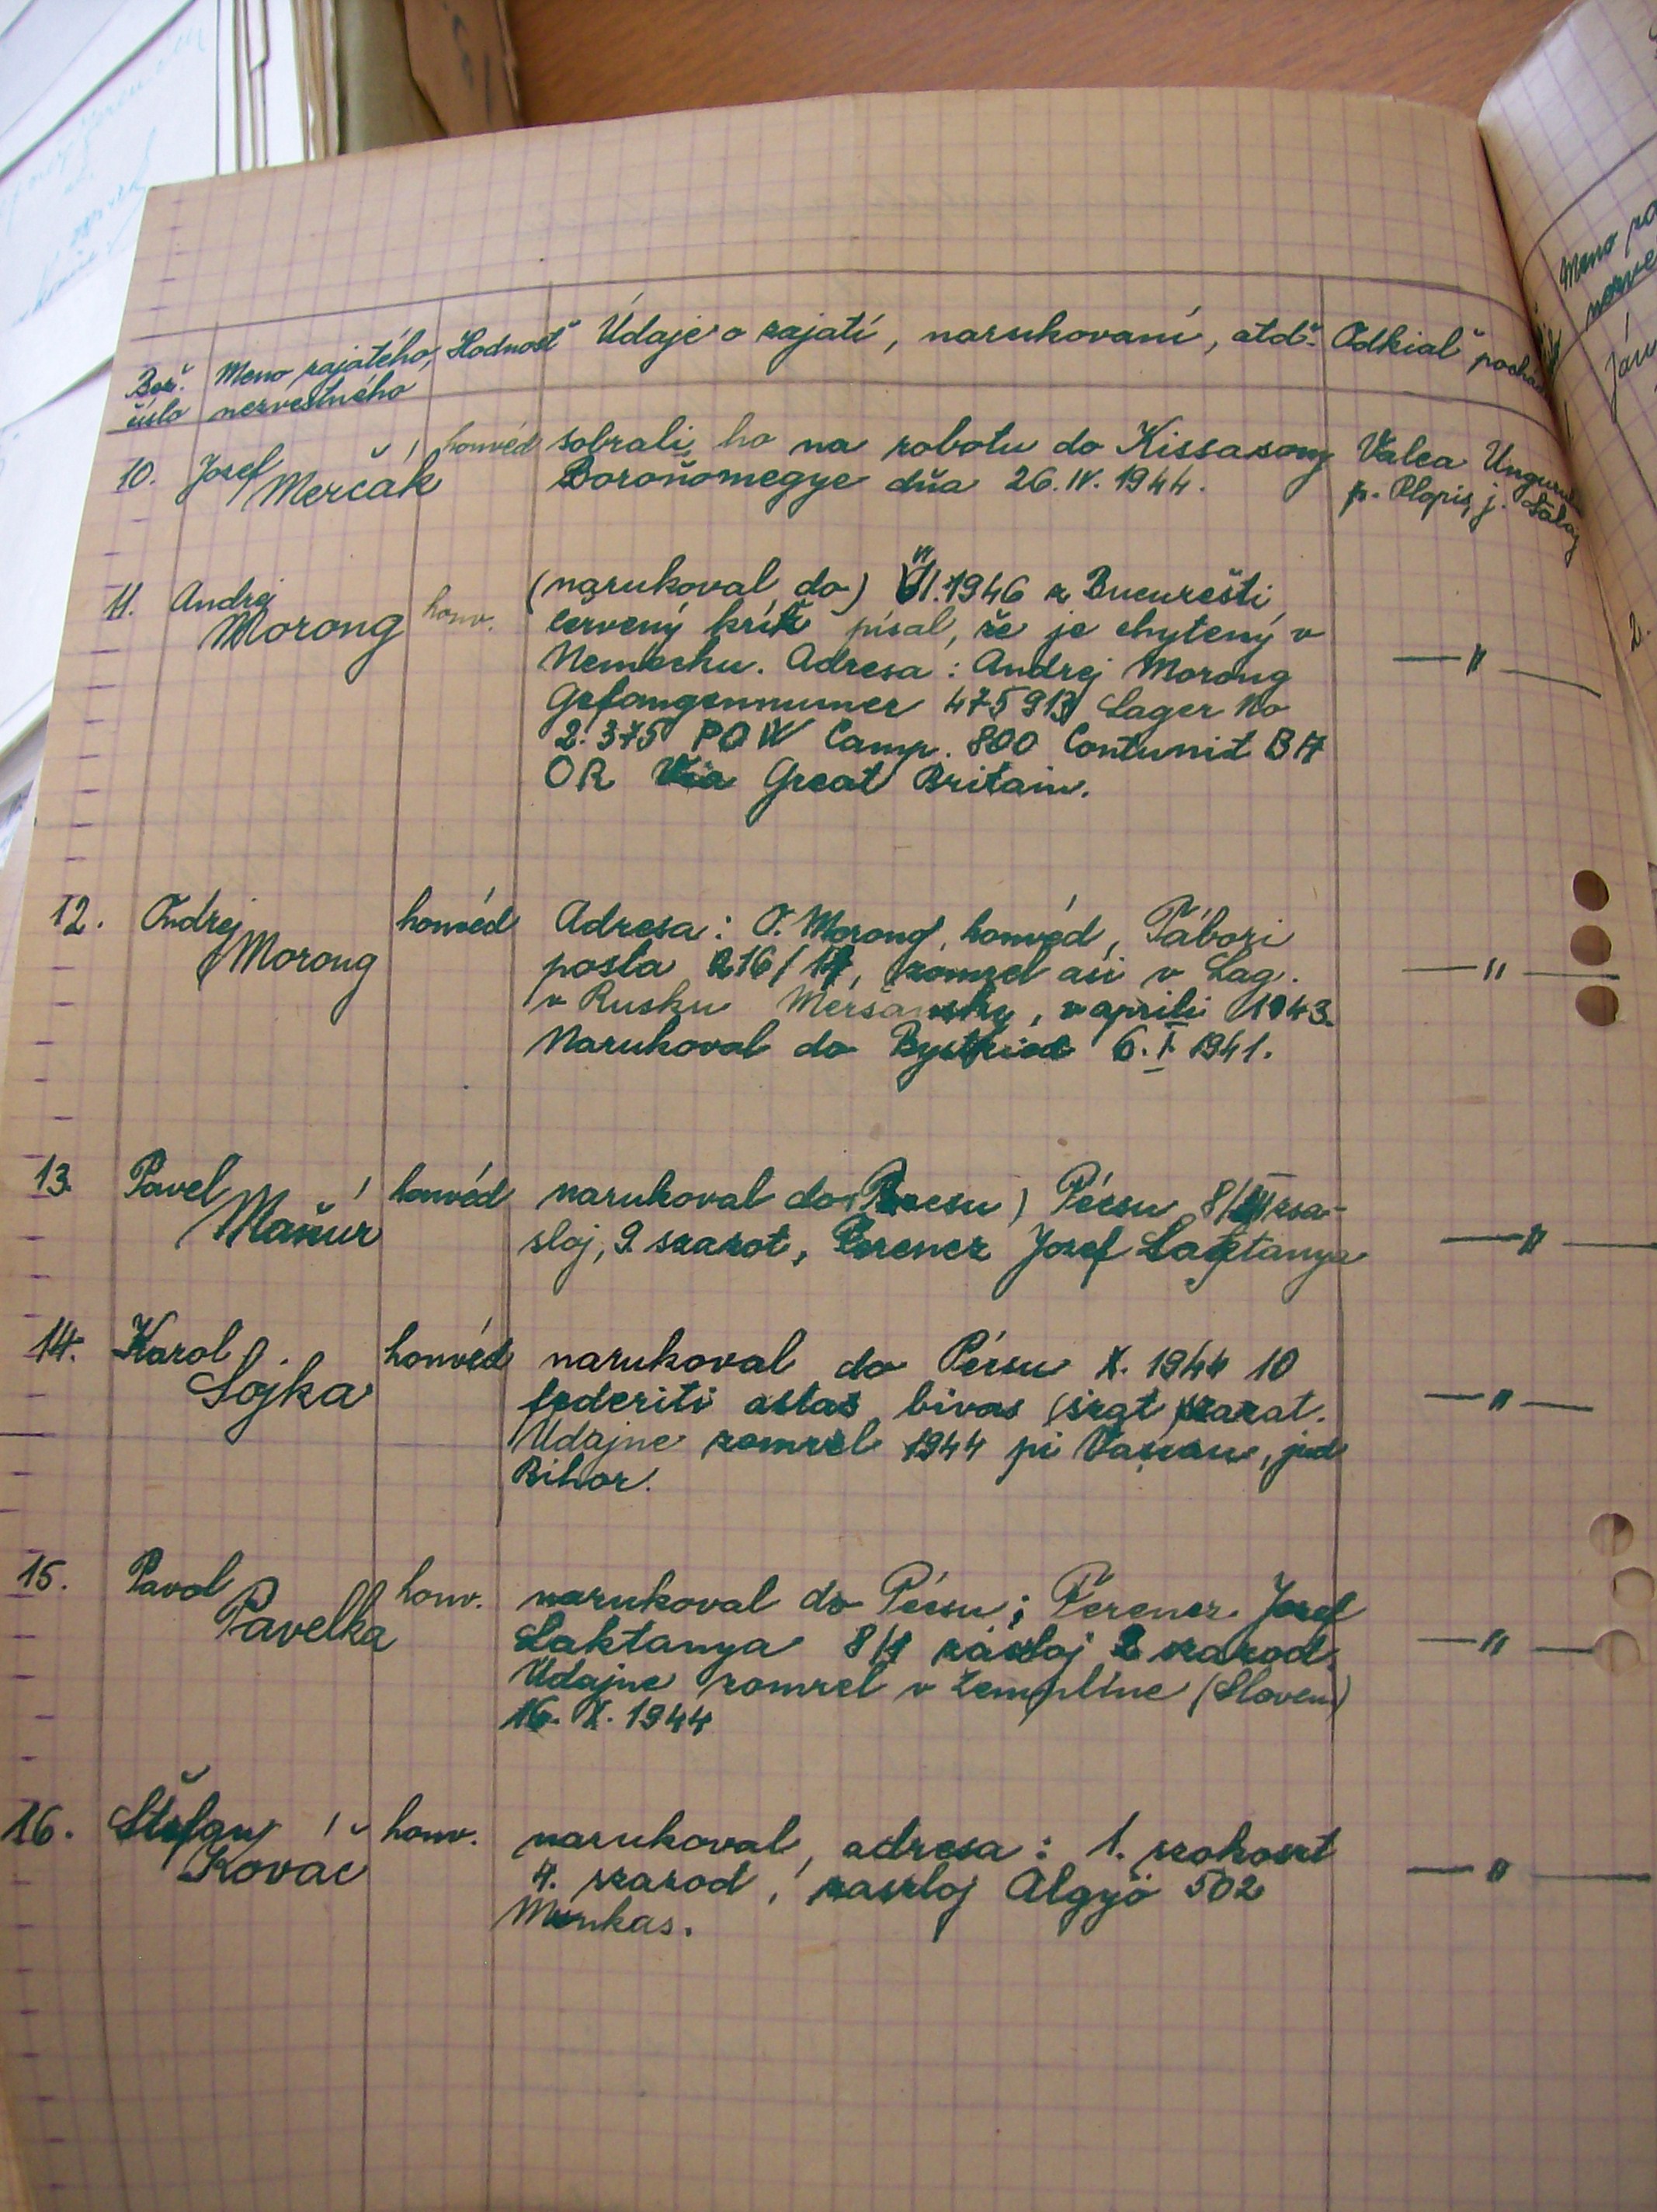 Bež. Meno zajatého, Hodnosť Údaje o zajatí, narukovaní, atď. Odkiaľ pochá
číslo nezvestného
10. Jozef Merčák honvéd sobrali ho na robotu do Kissasony Valea Ungur
Boroňomegye dňa 26.IV.1944. p. Plopiş, j. Sălaj
11. Andrej Morong honv. (narukoval do) VI.1946 z Bucurešti
červený kríž písal, že je chytený v
Nemecku. Adresa: Andrej Morong — " —
Gefangennumer 475913 Lager No
2. 375 POW Camp. 800 Contunit BA
OR Via Great Britain.
12. Ondrej Morong honvéd Adresa: O. Morong, honvéd, Tábori
posta 216/17, zomrel asi v Lag. — " —
v Rusku Meršansky, v apríli 1943.
Narukoval do 6.I.1941.
13. Pavel Mažúr honvéd narukoval do Pécsu 8/III zsa-
sloj, 9. szazot, Ferencz Jozef Laktanya — " —
14. Karol Sojka honvéd narukoval do Pécsu X. 1944 10
federiti astas bivas (szgt) szazat. — " —
Udajne zomrel 1944 pi, jud
Bihor.
15. Pavol Pavelka honv. narukoval do Pécsu; Ferencz Jozef
Laktanya 8/1 zászloj 2 szazod. — " —
Udajne zomrel v Zemplíne (Sloven)
16. X. 1944
16. Štefan Kováč honv. narukoval, adresa: 1. szokoszt
4. szazod, zaszloj Algyö 502 — " —
Munkas.
Meno za
nezve
Ján
2.